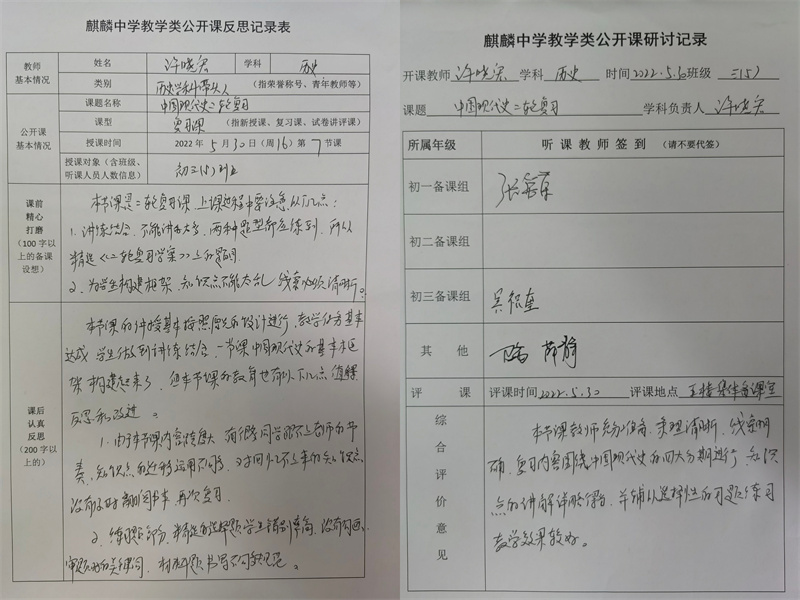 麒麟中学教学类公开课反思记录表
教师
基本情况
姓名
许晓宏
学科
历史
类别
历史学科带头人
（指荣誉称号、青年教师等）
公开课
基本情况
课题名称
中国现代史二轮复习
课型
复习课
（指新授课、复习课、试卷讲评课）
授课时间
2022 年 5 月 30 日（周 16）第 7 节课
授课对象（含班级、
听课人员人数信息）
初三(5)班
课前
精心
打磨
（100 字以
上的备课
设想）
本节课是二轮复习课，上课过程中要注意从下几点：
1. 讲练结合，不能讲为大方，两种题型都应练到，所以
精选《二轮复习学案》上的题目。
2、为学生构建框架，知识点不能太乱，线索必须清晰。
课后
认真
反思
（200 字以
上的）
本节课的讲授基本按照原先的设计进行，教学任务基本
达成，学生做到讲练结合，一节课中国现代史的基本框
架构建起来了，但本节课的教育也有以下几点值得
反思和改进。
1、由于本节课内容跨度大，有很多同学跟不上老师的节
奏，知识点的迁移运用不够，对回忆不上来的知识点
没有及时翻阅书本，再次复习。
2、练习题部分，精选的选择题学生错到率高，没有勾画
审题时的关键词，材料题书写不够规范。
麒麟中学教学类公开课研讨记录
开课教师 许晓宏 学科 历史 时间 2022.5.30 班级 三(5)
课题 中国现代史二轮复习 学科负责人 许晓宏
所属年级
听课教师签到 （请不要代签）
初一备课组
初二备课组
初三备课组
其 他
薛静
评 课
评课时间 2022.5.30 评课地点 王楼集体备课室
综
合
评
价
意
见
本节课教师充分准备，条理清晰，线索明
确，复习内容围绕中国现代史的四大分期进行，知识
点的讲解详略得当，并辅以选择性的习题练习
教学效果较好。